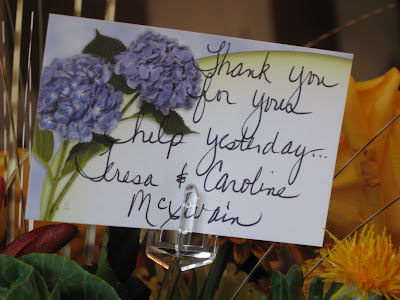 Thank you
for your
help yesterday...
Teresa & Caroline
McIlwain